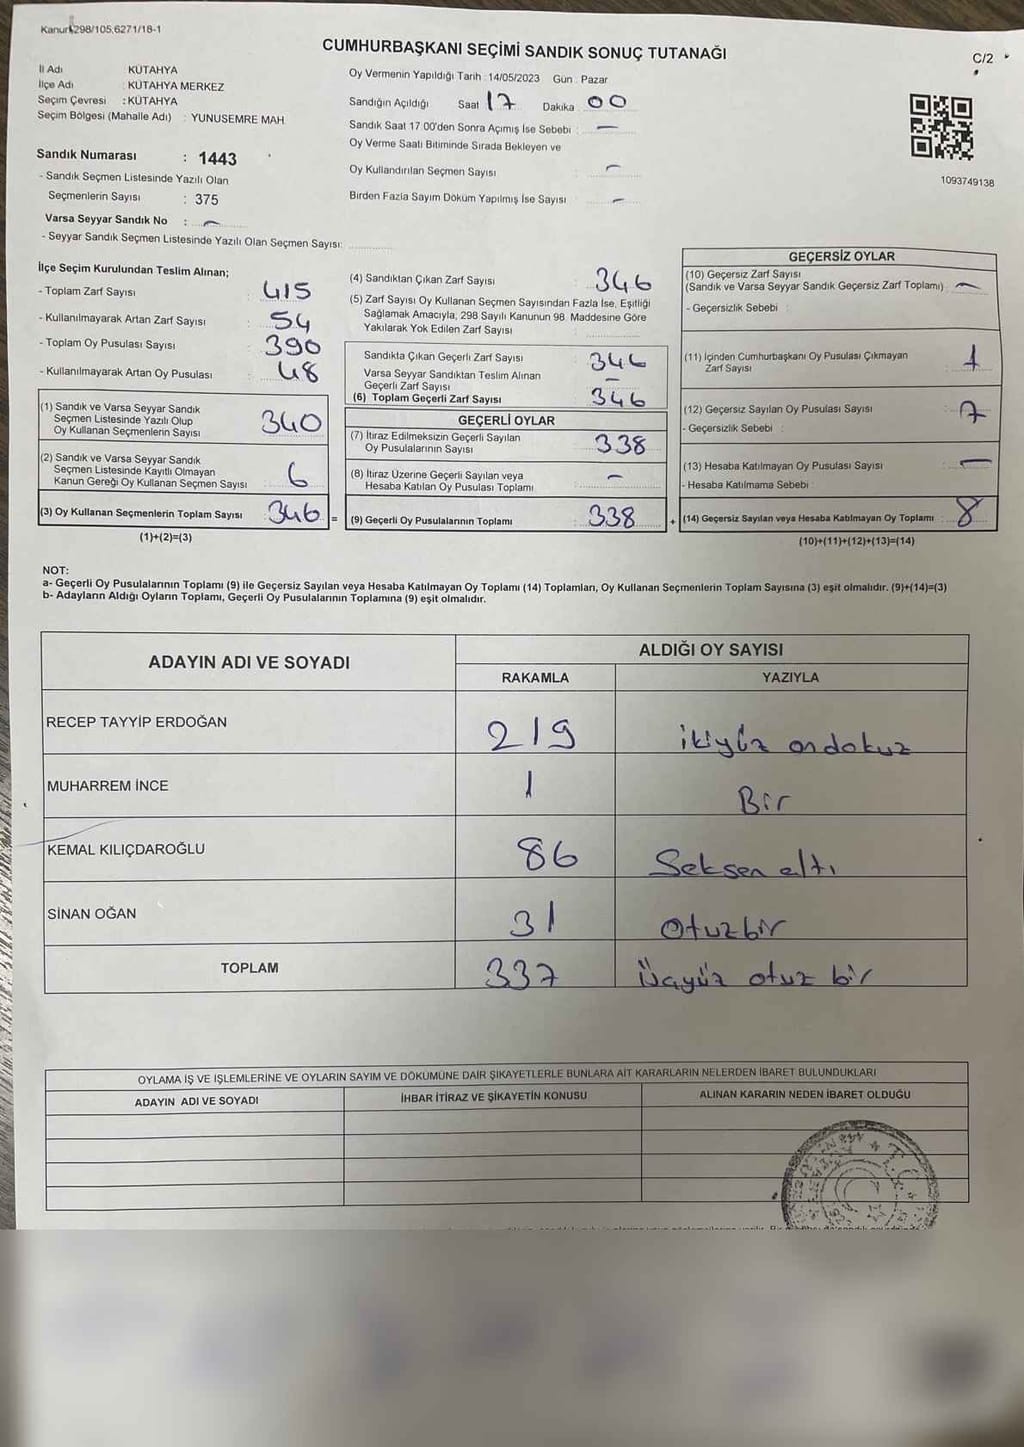 Kanun:298/105,6271/18-1
CUMHURBAŞKANI SEÇİMİ SANDIK SONUÇ TUTANAĞI
C/2
İl Adı : KÜTAHYA
İlçe Adı : KÜTAHYA MERKEZ
Seçim Çevresi : KÜTAHYA
Seçim Bölgesi (Mahalle Adı) : YUNUSEMRE MAH.
Oy Vermenin Yapıldığı Tarih : 14/05/2023 Gün : Pazar
Sandığın Açıldığı Saat 17 Dakika : 00
Sandık Saat 17.00'den Sonra Açımış İse Sebebi : —
Oy Verme Saati Bitiminde Sırada Bekleyen ve
Oy Kullandırılan Seçmen Sayısı : —
Birden Fazla Sayım Döküm Yapılmış İse Sayısı : —
1093749138
Sandık Numarası : 1443
- Sandık Seçmen Listesinde Yazılı Olan
Seçmenlerin Sayısı : 375
Varsa Seyyar Sandık No : —
- Seyyar Sandık Seçmen Listesinde Yazılı Olan Seçmen Sayısı:
İlçe Seçim Kurulundan Teslim Alınan;
- Toplam Zarf Sayısı : 415
- Kullanılmayarak Artan Zarf Sayısı : 54
- Toplam Oy Pusulası Sayısı : 390
- Kullanılmayarak Artan Oy Pusulası : 48
(1) Sandık ve Varsa Seyyar Sandık
Seçmen Listesinde Yazılı Olup
Oy Kullanan Seçmenlerin Sayısı 340
(2) Sandık ve Varsa Seyyar Sandık
Seçmen Listesinde Kayıtlı Olmayan
Kanun Gereği Oy Kullanan Seçmen Sayısı 6
(3) Oy Kullanan Seçmenlerin Toplam Sayısı : 346 =
(1)+(2)=(3)
(4) Sandıktan Çıkan Zarf Sayısı : 346
(5) Zarf Sayısı Oy Kullanan Seçmen Sayısından Fazla İse, Eşitliği
Sağlamak Amacıyla, 298 Sayılı Kanunun 98. Maddesine Göre
Yakılarak Yok Edilen Zarf Sayısı :
Sandıkta Çıkan Geçerli Zarf Sayısı : 346
Varsa Seyyar Sandıktan Teslim Alınan
Geçerli Zarf Sayısı : —
(6) Toplam Geçerli Zarf Sayısı : 346
GEÇERLİ OYLAR
(7) İtiraz Edilmeksizin Geçerli Sayılan
Oy Pusulalarının Sayısı : 338
(8) İtiraz Üzerine Geçerli Sayılan veya
Hesaba Katılan Oy Pusulası Toplamı : —
(9) Geçerli Oy Pusulalarının Toplamı : 338 +
GEÇERSİZ OYLAR
(10) Geçersiz Zarf Sayısı
(Sandık ve Varsa Seyyar Sandık Geçersiz Zarf Toplamı) : —
- Geçersizlik Sebebi :
(11) İçinden Cumhurbaşkanı Oy Pusulası Çıkmayan
Zarf Sayısı : 1
(12) Geçersiz Sayılan Oy Pusulası Sayısı : 7
- Geçersizlik Sebebi :
(13) Hesaba Katılmayan Oy Pusulası Sayısı : —
- Hesaba Katılmama Sebebi :
(14) Geçersiz Sayılan veya Hesaba Katılmayan Oy Toplamı : 8
(10)+(11)+(12)+(13)=(14)
NOT:
a- Geçerli Oy Pusulalarının Toplamı (9) ile Geçersiz Sayılan veya Hesaba Katılmayan Oy Toplamı (14) Toplamları, Oy Kullanan Seçmenlerin Toplam Sayısına (3) eşit olmalıdır. (9)+(14)=(3)
b- Adayların Aldığı Oyların Toplamı, Geçerli Oy Pusulalarının Toplamına (9) eşit olmalıdır.
ADAYIN ADI VE SOYADI
ALDIĞI OY SAYISI
RAKAMLA YAZIYLA
RECEP TAYYİP ERDOĞAN 219 ikiyüz ondokuz
MUHARREM İNCE 1 Bir
KEMAL KILIÇDAROĞLU 86 Seksen altı
SİNAN OĞAN 31 Otuzbir
TOPLAM 337 Üçyüz otuz bir
OYLAMA İŞ VE İŞLEMLERİNE VE OYLARIN SAYIM VE DÖKÜMÜNE DAİR ŞİKAYETLERLE BUNLARA AİT KARARLARIN NELERDEN İBARET BULUNDUKLARI
ADAYIN ADI VE SOYADI İHBAR İTİRAZ VE ŞİKAYETİN KONUSU ALINAN KARARIN NEDEN İBARET OLDUĞU
T.C.